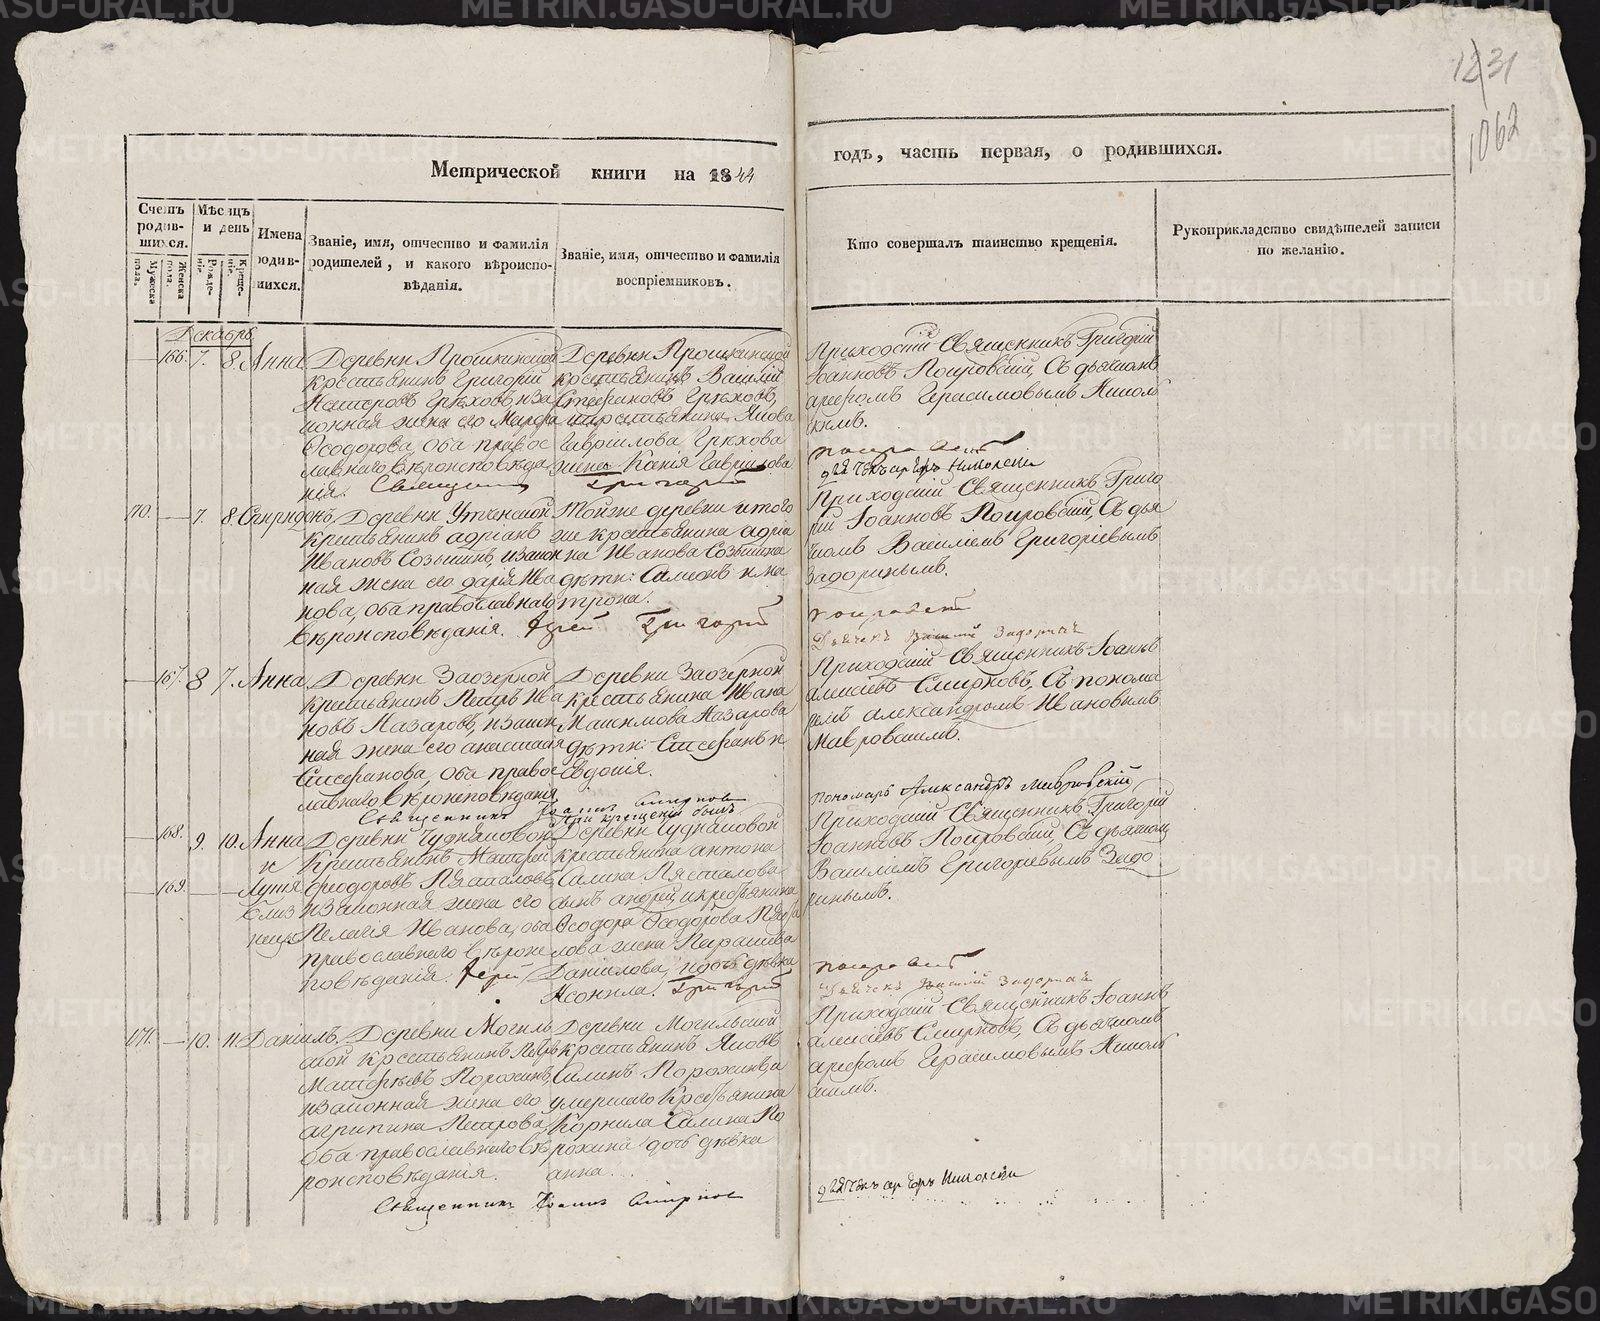 1231
1062
Метрической книги на 1844
годъ, часть первая, о родившихся.
Счетъ родившихся.
Мужеска пола.
Женска пола.
Мѣсяцъ и день
Рожденіе.
Крещеніе.
Имена родившихся.
Званіе, имя, отчество и фамилія родителей, и какого вѣроисповѣданія.
Званіе, имя, отчество и фамилія воспріемниковъ.
Кто совершалъ таинство крещенія.
Рукоприкладство свидѣтелей записи по желанію.
Декабрь
166. 7. 8. Анна
Деревни Прошкинской
крестьянинъ Григорій
Грѣховъ, и за
конная жена его Марфа
Ѳеодорова, оба право
славнаго вѣроисповѣда
нія. Священникъ Григорій
Деревни Прошкинской
крестьянинъ Василій
Стефановъ Грѣховъ,
крестьянина Якова
Гавриилова Грѣхова
жена Ксенія Гавриилова
Приходскій Священникъ Григорій
Іоанновъ Покровскій, Съ дьячкомъ
Герасимовымъ Николь
скимъ.
70. 7. 8. Спиридонъ,
Деревни
крестьянинъ Адріанъ
Ивановъ Созыкинъ, и закон
ная жена его Дарія Ива
нова, оба православнаго
вѣроисповѣданія. Іерей Григорій
Тойже деревни и того
же крестьянина Адріа
на Иванова Созыкина
дѣти: Симеонъ и Ма
трона.
Приходскій Священникъ Григо
рій Іоанновъ Покровскій, Съ дья
чкомъ Василіемъ Григоріевымъ
Задоринымъ.
167. 8 7. Анна
Деревни Заозерной
крестьянинъ Петръ Ива
новъ Назаровъ, и закон
ная жена его Анастасія
Стефанова, оба право
славнаго вѣроисповѣданія
Священникъ Іоаннъ Смирновъ
Деревни Заозерной
крестьянина Ивана
Максимова Назарова
дѣти: Стефанъ и
Евдокія.
Приходскій Священникъ Іоаннъ
Алексіевъ Смирновъ, Съ понома
ремъ Александромъ Ивановымъ
Мавровскимъ.
Пономарь Александръ Мавровскій
168. 9. 10. Анна
и
169. Лукія
близ
нецы
Крестьянинъ Матѳей
Ѳеодоровъ
и законная жена его
Пелагія Иванова, оба
православнаго вѣроис
повѣданія. Іерей
При крещеніи былъ
крестьянина Антона
Савина
сынъ Андрей, и крестьянина
Ѳеодора Ѳеодорова
жена Параскева
Даніилова, дочь дѣвка
Григорій
Приходскій Священникъ Григорій
Іоанновъ Покровскій, Съ дьячкомъ
Василіемъ Григоріевымъ Задо
ринымъ.
Дьячекъ Василій Задоринъ
171. 10. 11. Даніилъ.
Деревни Могиль
ской крестьянинъ Петръ
Матѳіевъ Порохинъ,
и законная жена его
Агрипина Петрова,
оба православнаго вѣ
роисповѣданія.
Священникъ Іоаннъ Смирновъ
Деревни Могильской
крестьянинъ Яковъ
Савинъ Порохинъ, и
умершаго крестьянина
Корнила Савина По
рохина дочь дѣвка
Анна.
Приходскій Священникъ Іоаннъ
Алексіевъ Смирновъ, Съ дьячкомъ
Герасимовымъ Николь
скимъ.